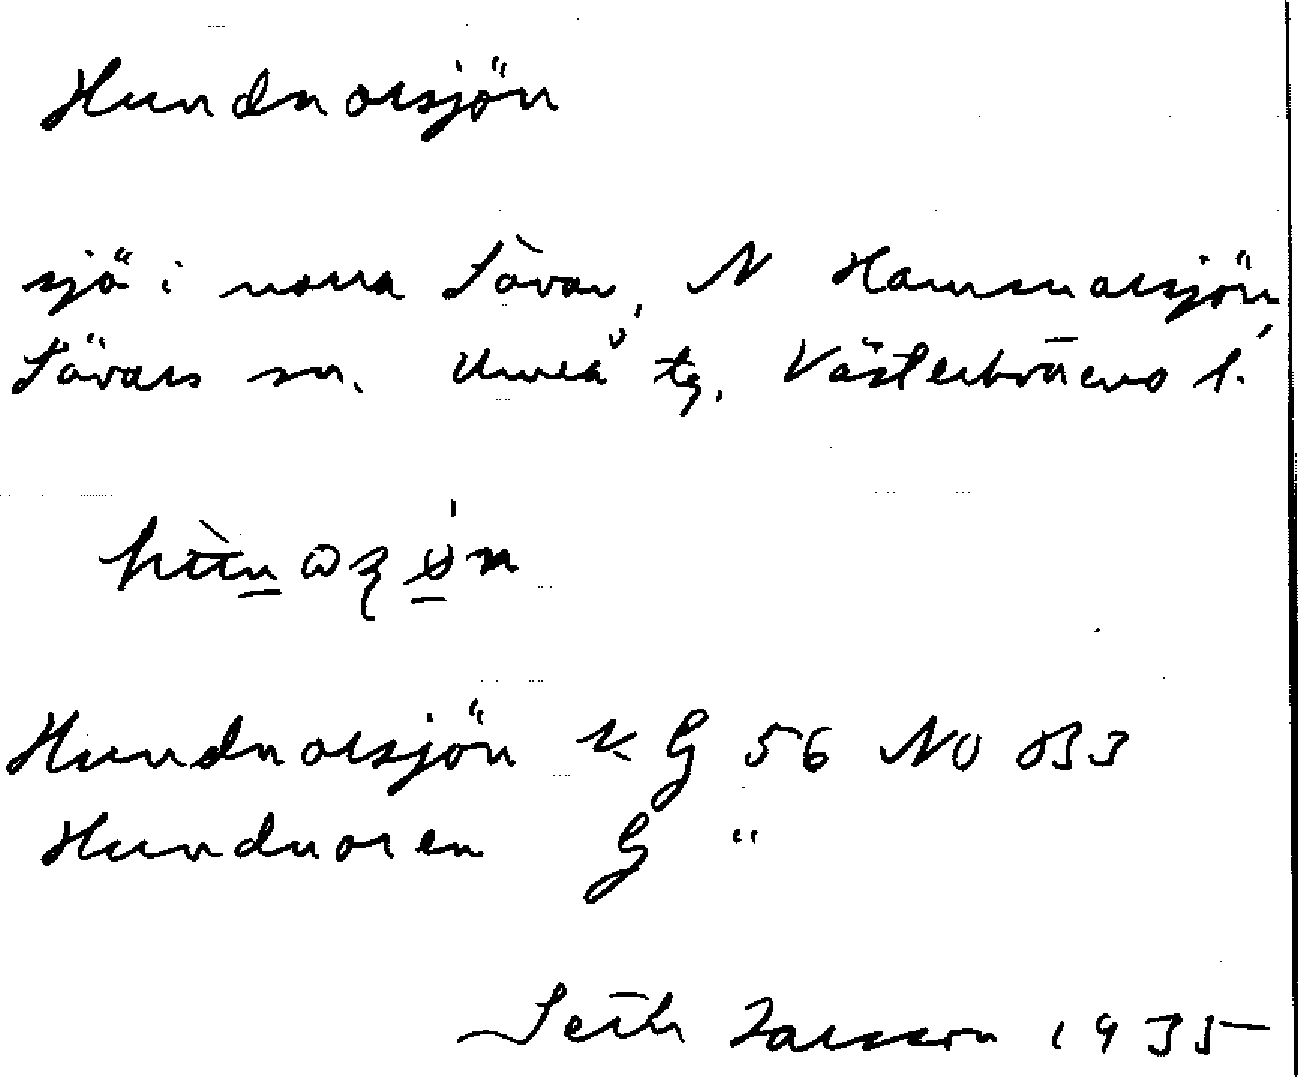 Hundnorsjön
sjö i norra Sävar, N Hamnmorsjön,
Sävars sn. Umeå tg. Västerbottens l.
Hundnorsjön k G 56 NO 033
Hundnoren G "
Seth Larsson 1935